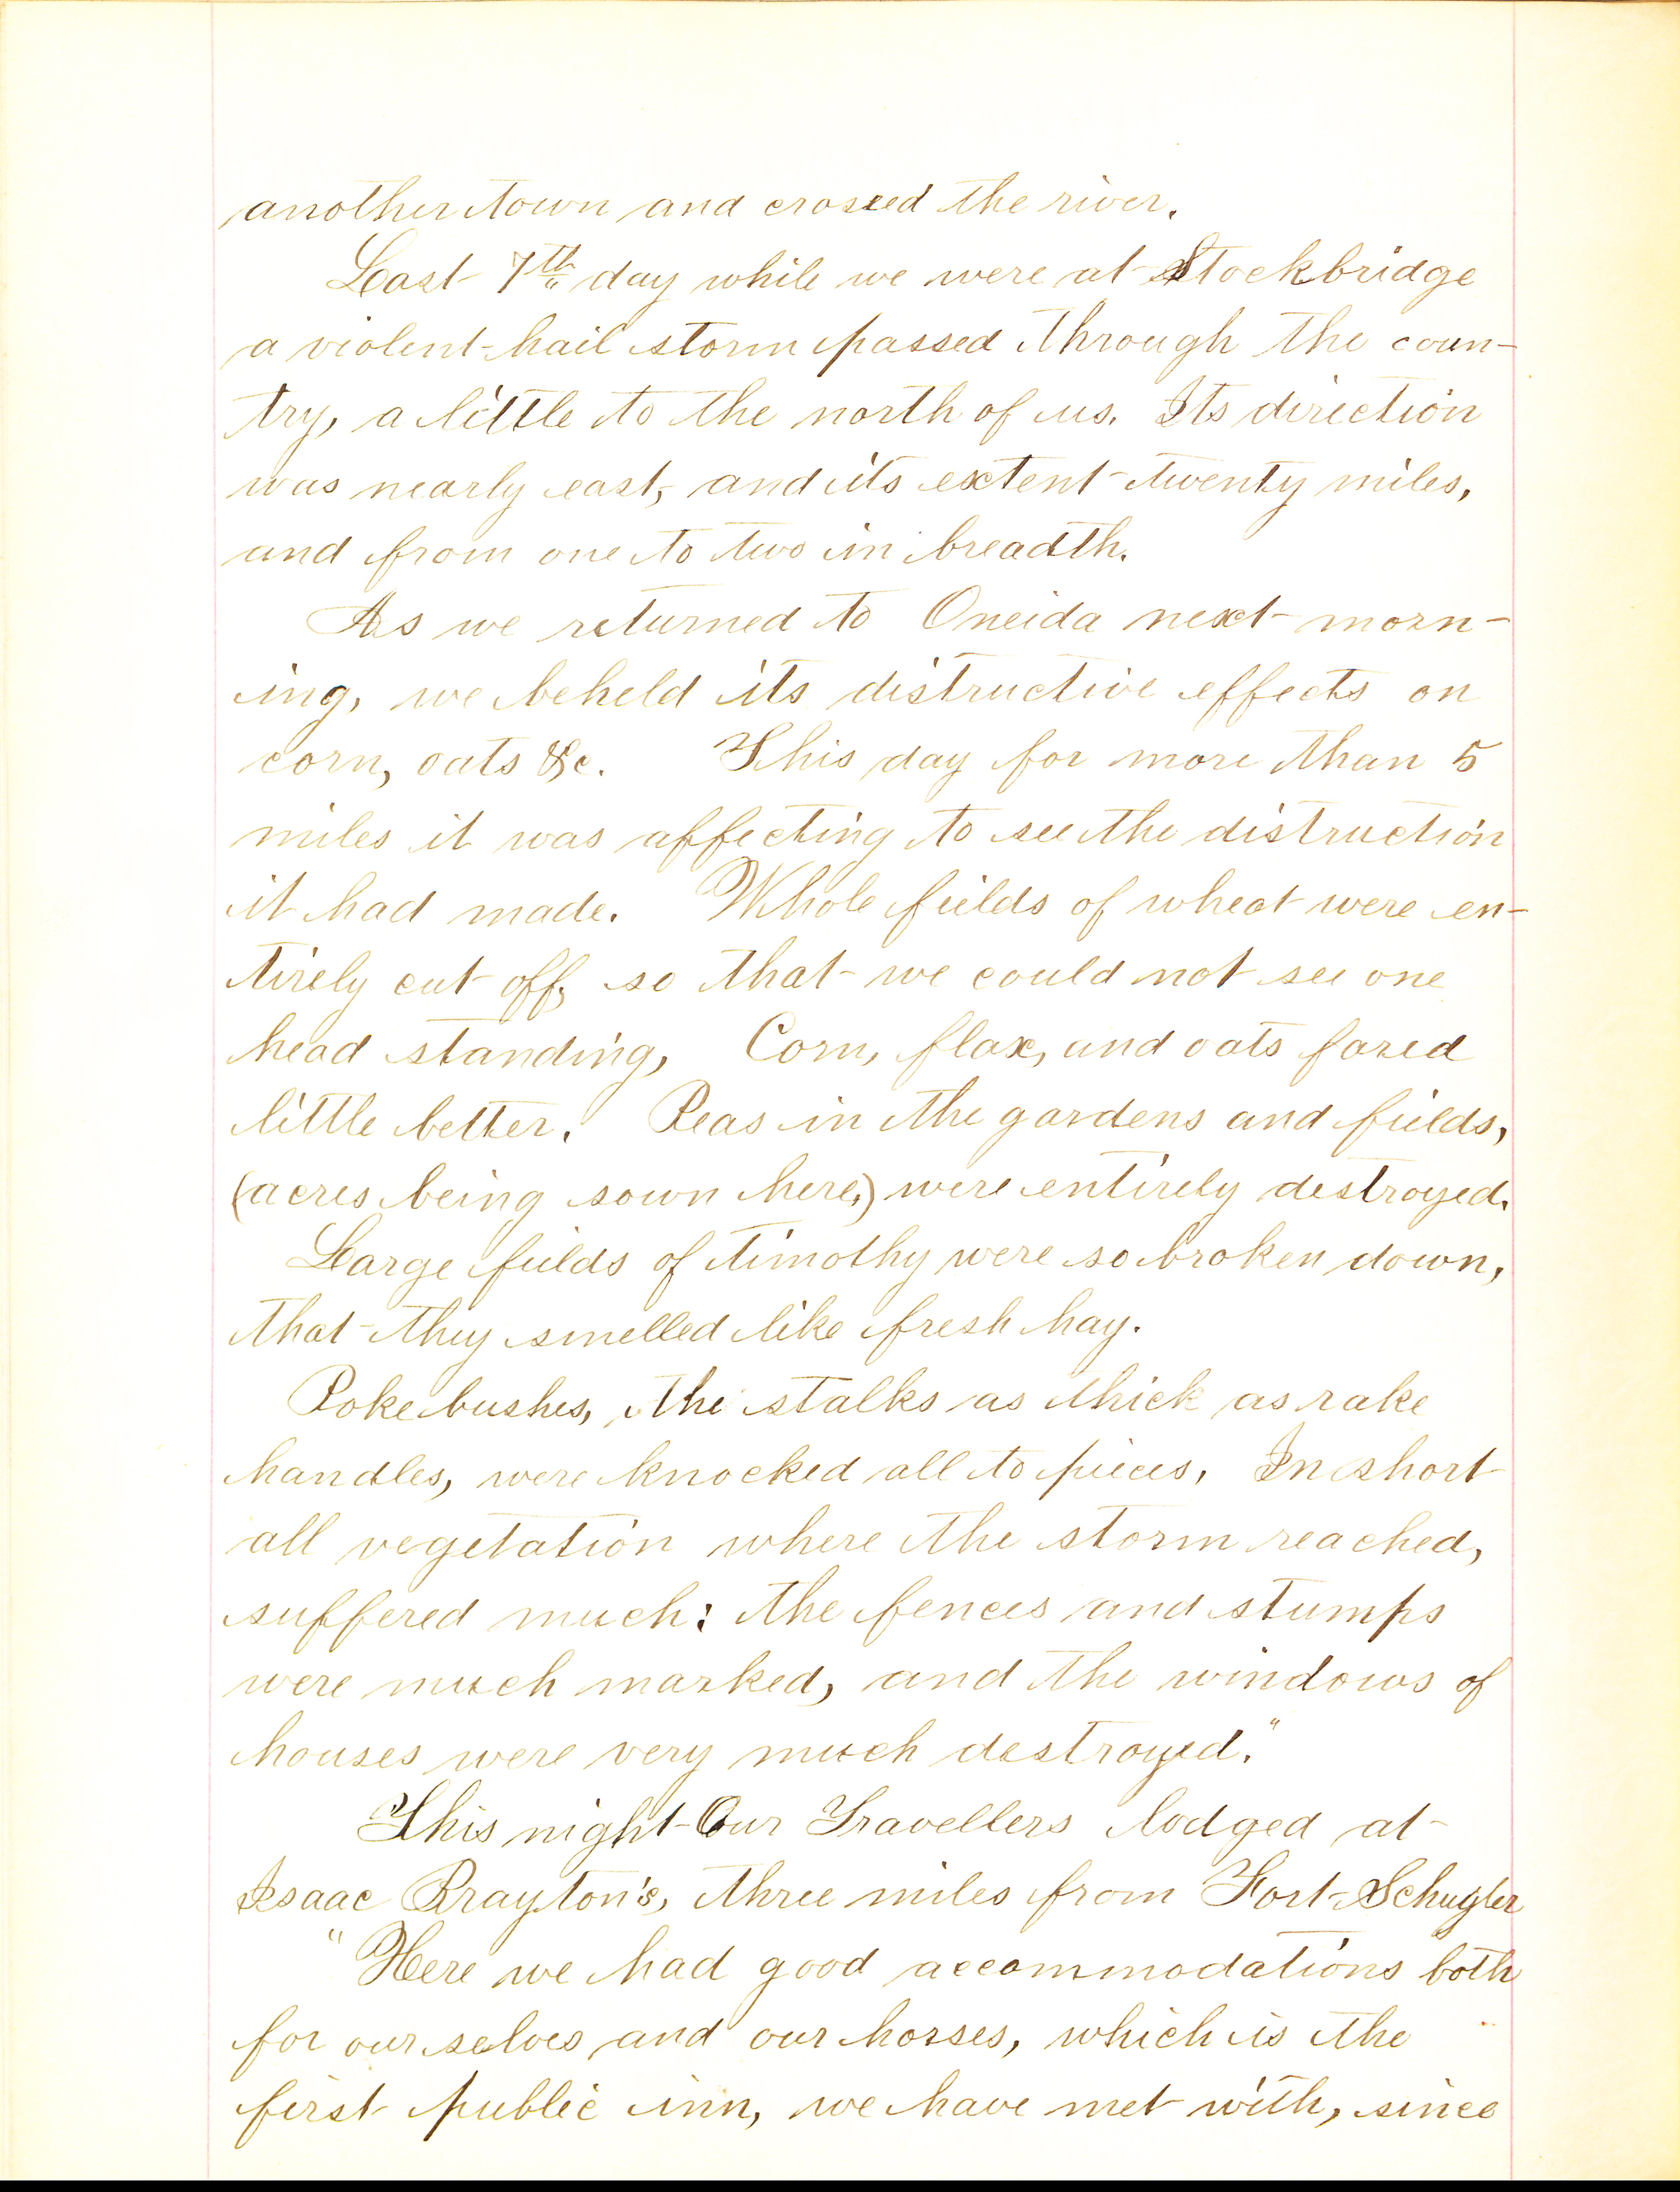 another town and crossed the river.
Last 7th day while we were at Stockbridge
a violent hail storm passed through the coun-
try, a little to the north of us. Its direction
was nearly east, and its extent twenty miles,
and from one to two in breadth.
As we returned to Oneida next morn-
ing, we beheld its distructive effects on
corn, oats &c. This day for more than 5
miles it was affecting to see the distruction
it had made. Whole fields of wheat were en-
tirely cut off, so that we could not see one
head standing, Corn, flax, and oats fared
little better. Peas in the gardens and fields,
(acres being sown here,) were entirely destroyed.
Large fields of timothy were so broken down,
that they smelled like fresh hay.
Poke bushes, the stalks as thick as rake
handles, were knocked all to pieces. In short
all vegetation where the storm reached,
suffered much: the fences and stumps
were much marked, and the windows of
houses were very much destroyed."
This night Our Travellers lodged at
Isaac Brayton's, three miles from Fort Schuyler
"Here we had good accommodations both
for ourselves and our horses, which is the
first public inn, we have met with, since